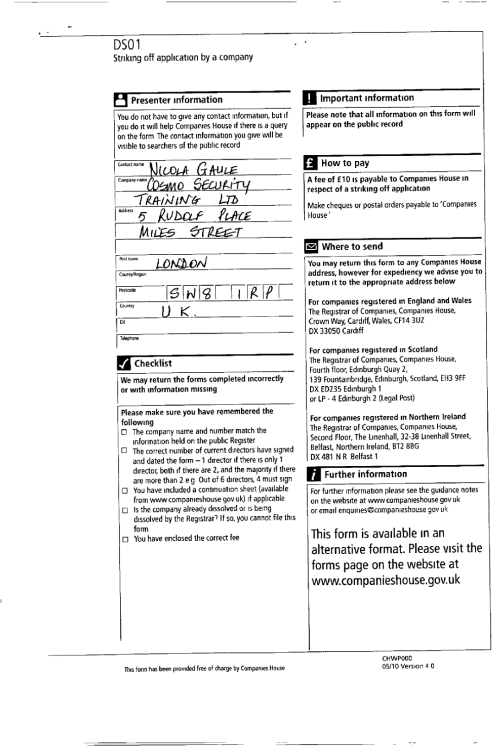 DS01
Striking off application by a company
Presenter information
You do not have to give any contact information, but if
you do it will help Companies House if there is a query
on the form The contact information you give will be
visible to searchers of the public record
Contact name NICOLA GAULE
Company name COSMO SECURITY
TRAINING LTD
Address 5 RUDOLF PLACE
MILES STREET
Post town LONDON
County/Region
Postcode SW8 1RP
Country U K.
DX
Telephone
Checklist
We may return the forms completed incorrectly
or with information missing
Please make sure you have remembered the
following
The company name and number match the
information held on the public Register
The correct number of current directors have signed
and dated the form – 1 director if there is only 1
director, both if there are 2, and the majority if there
are more than 2 e g Out of 6 directors, 4 must sign
You have included a continuation sheet (available
from www.companieshouse gov uk) if applicable
Is the company already dissolved or is being
dissolved by the Registrar? If so, you cannot file this
form
You have enclosed the correct fee
! Important information
Please note that all information on this form will
appear on the public record
£ How to pay
A fee of £10 is payable to Companies House in
respect of a striking off application
Make cheques or postal orders payable to 'Companies
House '
Where to send
You may return this form to any Companies House
address, however for expediency we advise you to
return it to the appropriate address below
For companies registered in England and Wales
The Registrar of Companies, Companies House,
Crown Way, Cardiff, Wales, CF14 3UZ
DX 33050 Cardiff
For companies registered in Scotland
The Registrar of Companies, Companies House,
Fourth floor, Edinburgh Quay 2,
139 Fountainbridge, Edinburgh, Scotland, EH3 9FF
DX ED235 Edinburgh 1
or LP - 4 Edinburgh 2 (Legal Post)
For companies registered in Northern Ireland
The Registrar of Companies, Companies House,
Second Floor, The Linenhall, 32-38 Linenhall Street,
Belfast, Northern Ireland, BT2 8BG
DX 481 N R Belfast 1
i Further information
For further information please see the guidance notes
on the website at www companieshouse gov uk
or email enquiries@companieshouse gov uk
This form is available in an
alternative format. Please visit the
forms page on the website at
www.companieshouse.gov.uk
This form has been provided free of charge by Companies House
CHWP000
05/10 Version 4 0